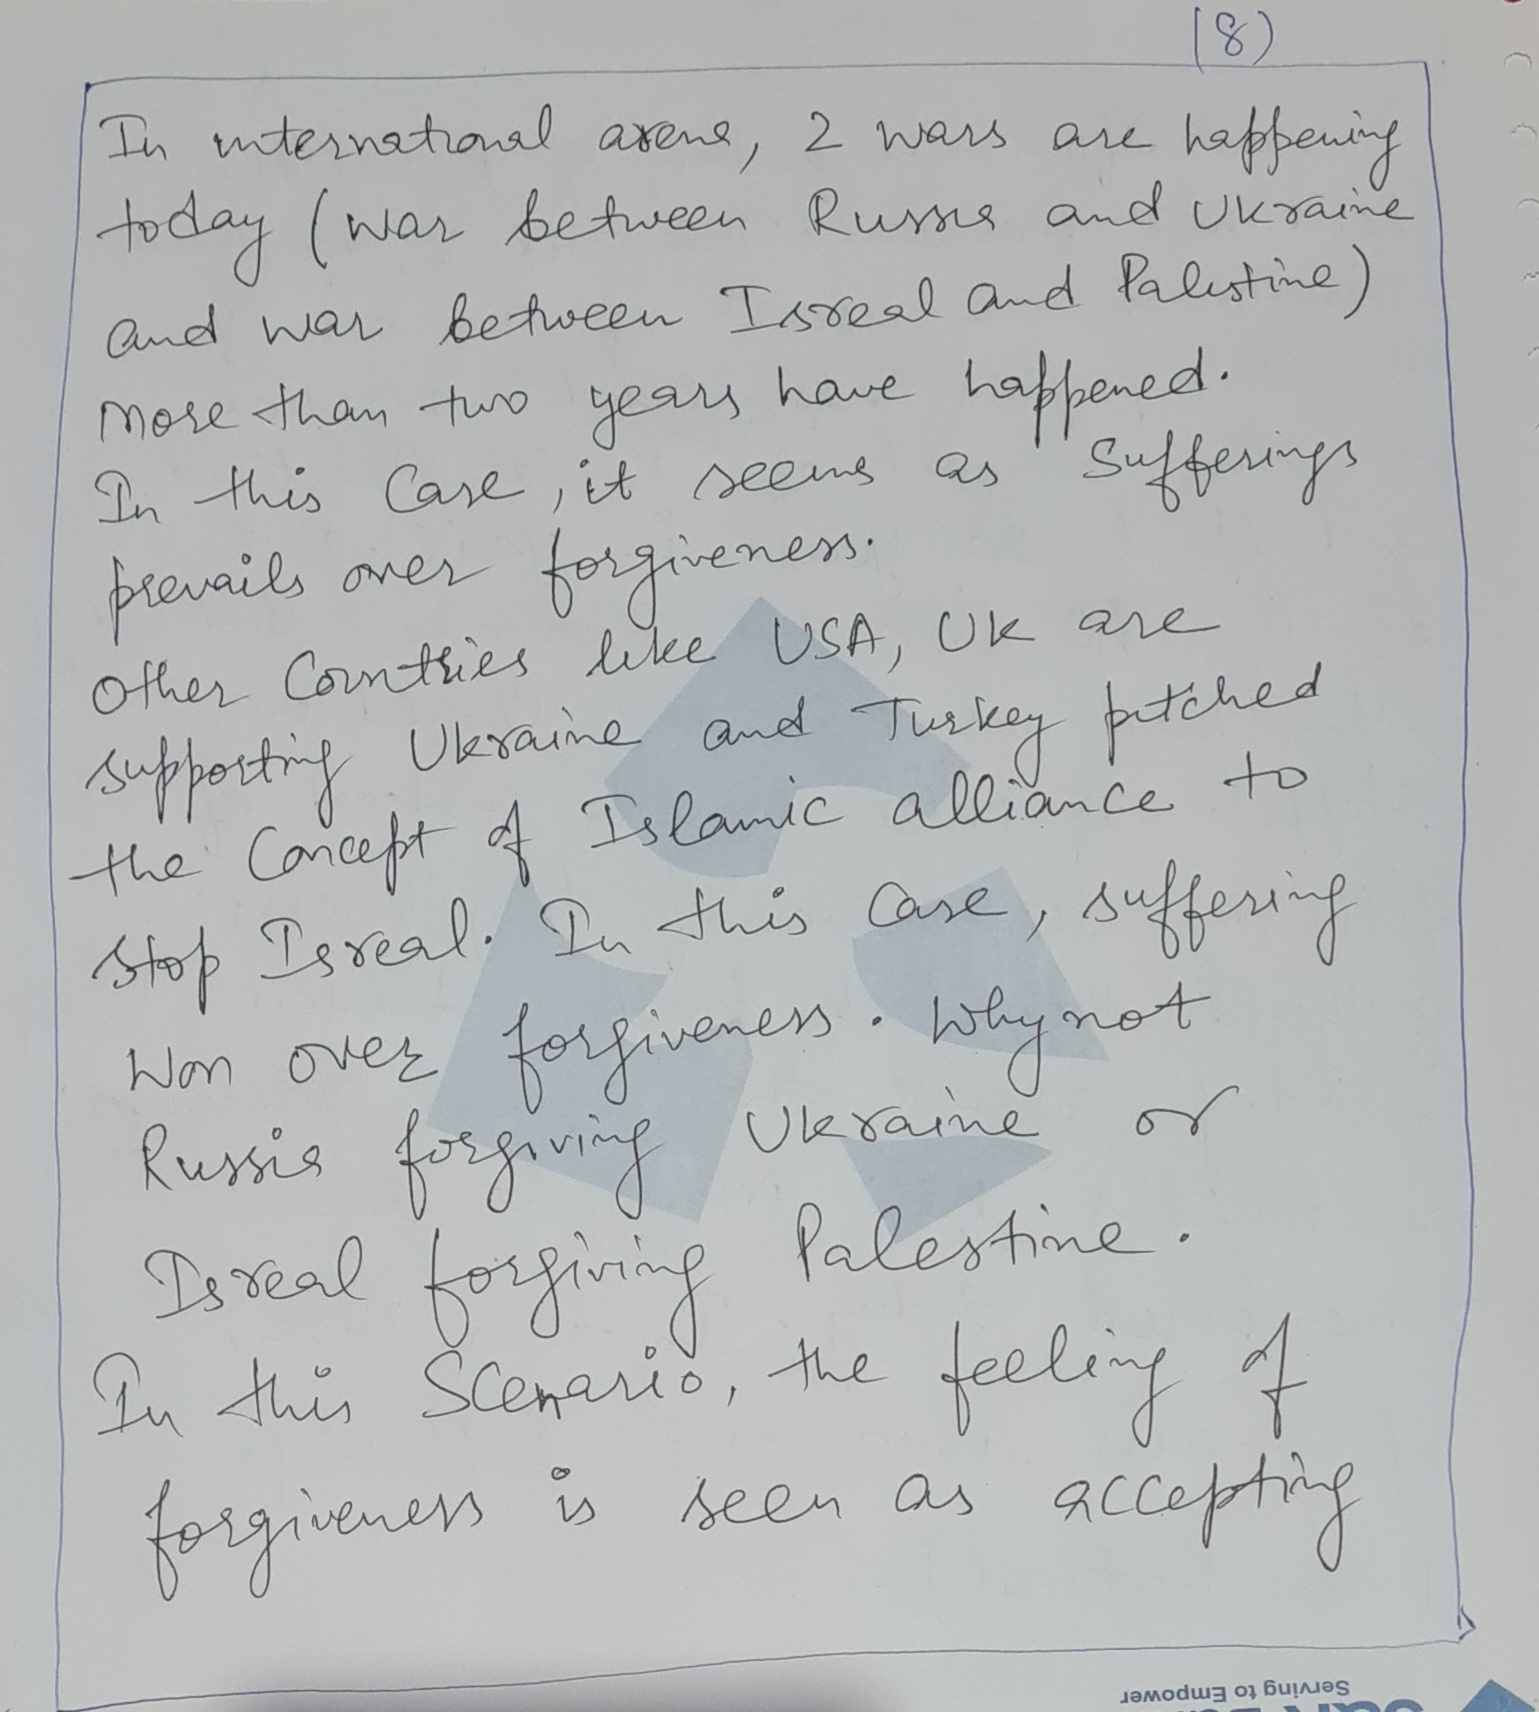 (8)
In international arena, 2 wars are happening
today (war between Russia and Ukraine
and war between Isreal and Palestine)
More than two years have happened.
In this Case, it seems as Sufferings
prevails over forgiveness.
Other Countries like USA, UK are
supporting Ukraine and Turkey pitched
the Concept of Islamic alliance to
stop Isreal. In this Case, suffering
Won over forgiveness. Why not
Russia forgiving Ukraine or
Isreal forgiving Palestine.
In this Scenario, the feeling of
forgiveness is seen as accepting
Serving to Empower